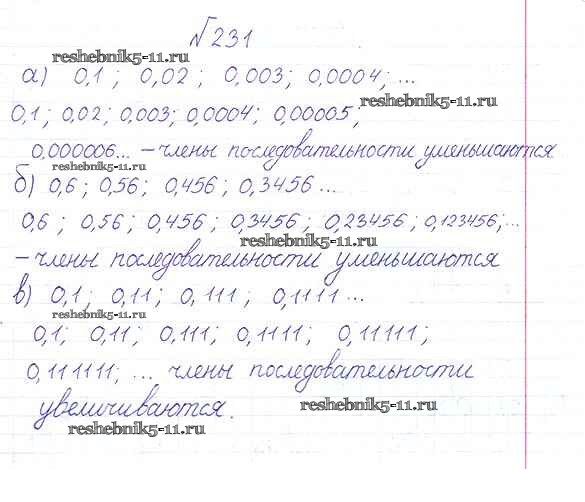 №231
reshebnik5-11.ru
а) 0,1; 0,02; 0,003; 0,0004; ...
reshebnik5-11.ru
0,1; 0,02; 0,003; 0,0004; 0,00005;
0,000006... – члены последовательности уменьшаются
reshebnik5-11.ru
б) 0,6; 0,56; 0,456; 0,3456...
0,6; 0,56; 0,456; 0,3456; 0,23456; 0,123456; ...
reshebnik5-11.ru
– члены последовательности уменьшаются
в) 0,1; 0,11; 0,111; 0,1111...
reshebnik5-11.ru
0,1; 0,11; 0,111; 0,1111; 0,11111;
0,111111; ... члены последовательности
увеличиваются.
reshebnik5-11.ru
reshebnik5-11.ru